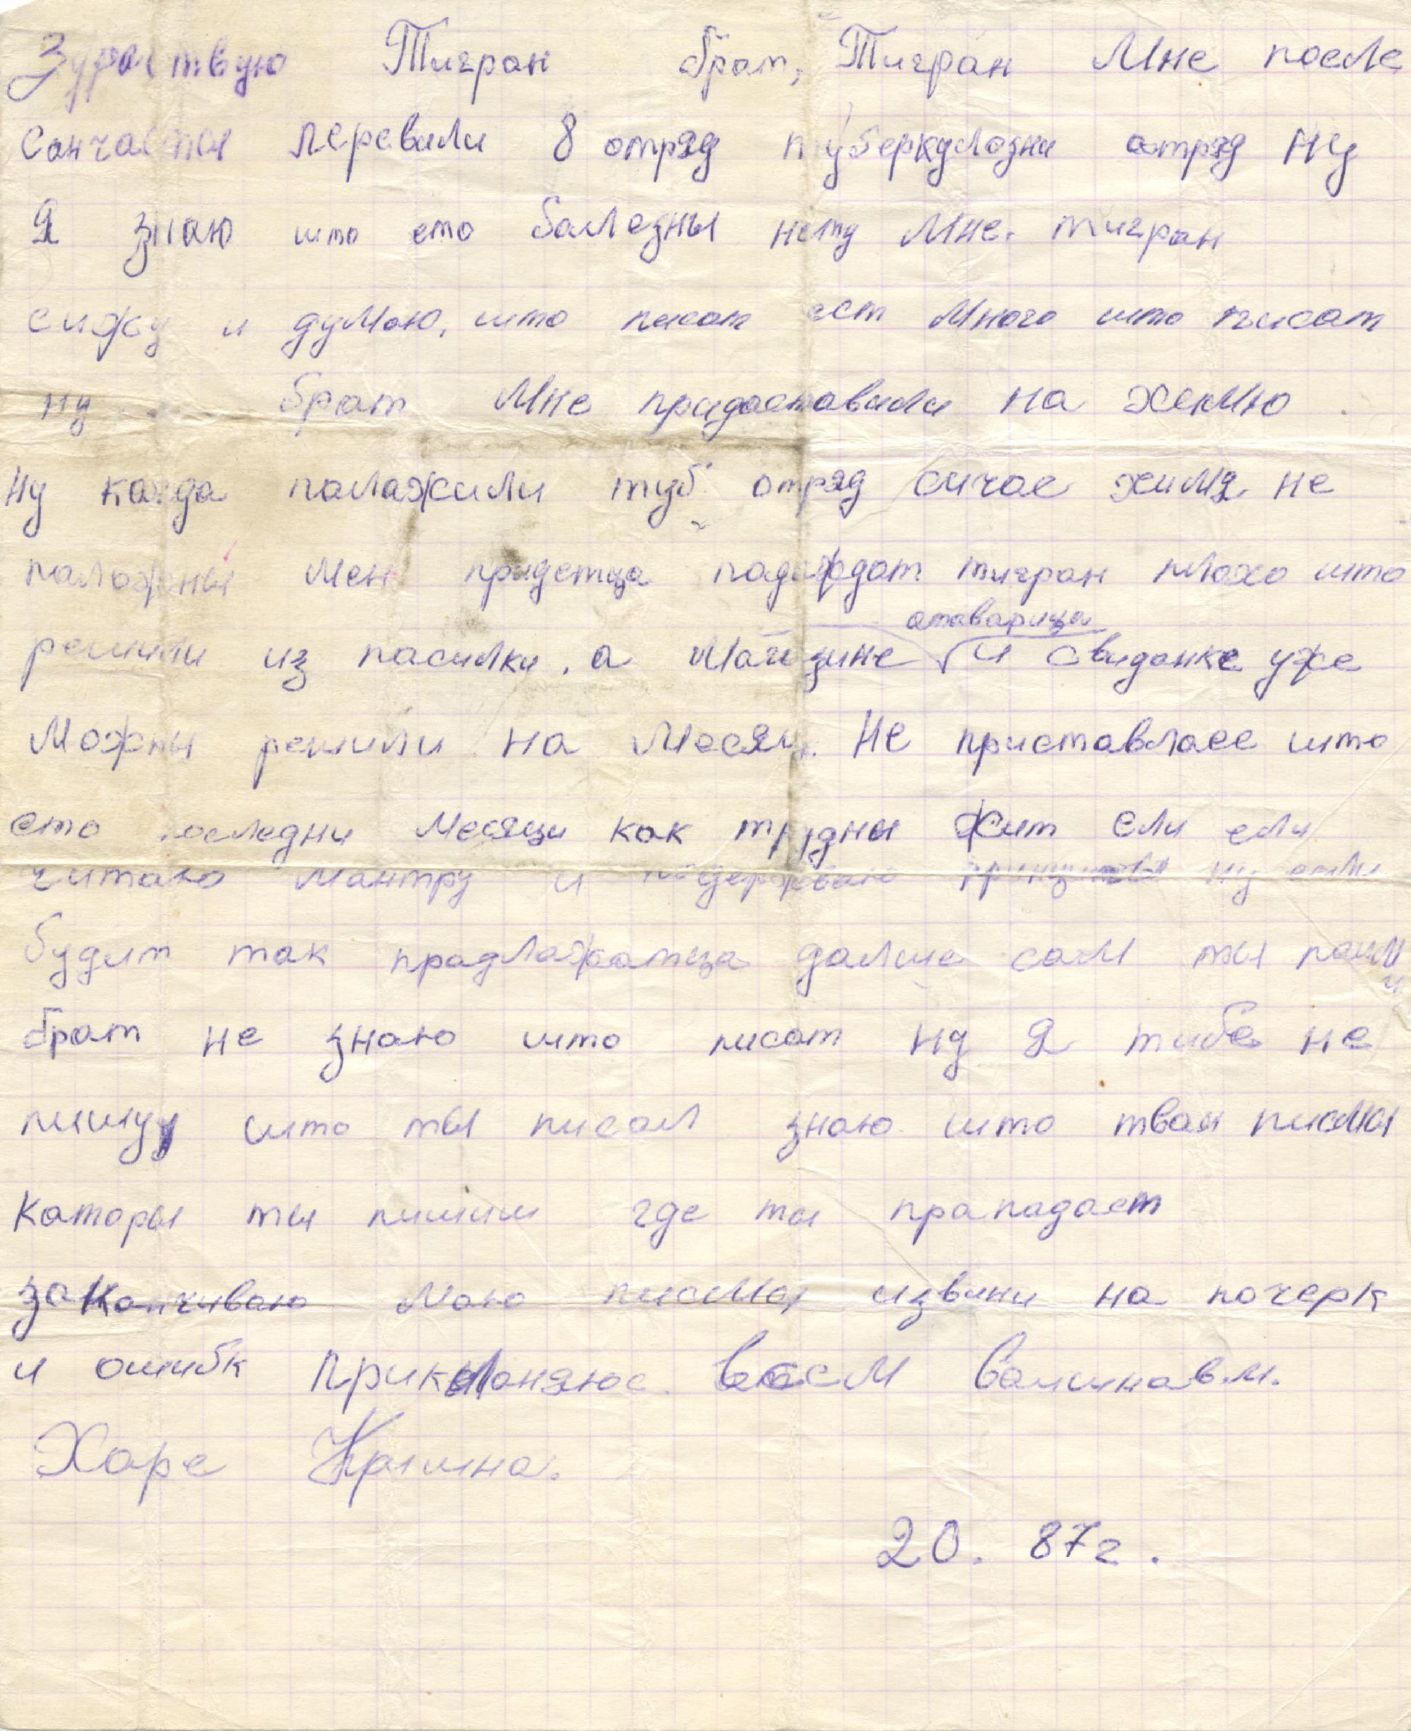 Здраствую Тигран брат, Тигран Мне после
Санчасты перевили 8 отряд туберкулозни отряд ну
Я знаю што ето балезны нету Мне. тигран
сижу и думаю, што писат ест много што писат
ну брат Мне придоставили на химю
ну когда палажили туб отряд сичас химя не
палажны Мен придетца падаждат тигран плохо што
решили из пасилки, а Магизине атаварица и свиданке уже
Можны решили на Месяц. Не приставлаее што
ето последни Месяци как трудны жит если если
читаю мантру и падерживаю принципы ну если
будит так прадлажатца далше сам ты паими
брат не знаю што писат ну я тибе не
пишу што ты писал знаю што твои писмы
каторы ты пишиш где та прападает
заканчиваю Маю писмы извини на почерк
и ошибк Прикланяюс Всем Вайшнавм.
Харе Кришна.
20. 87г.